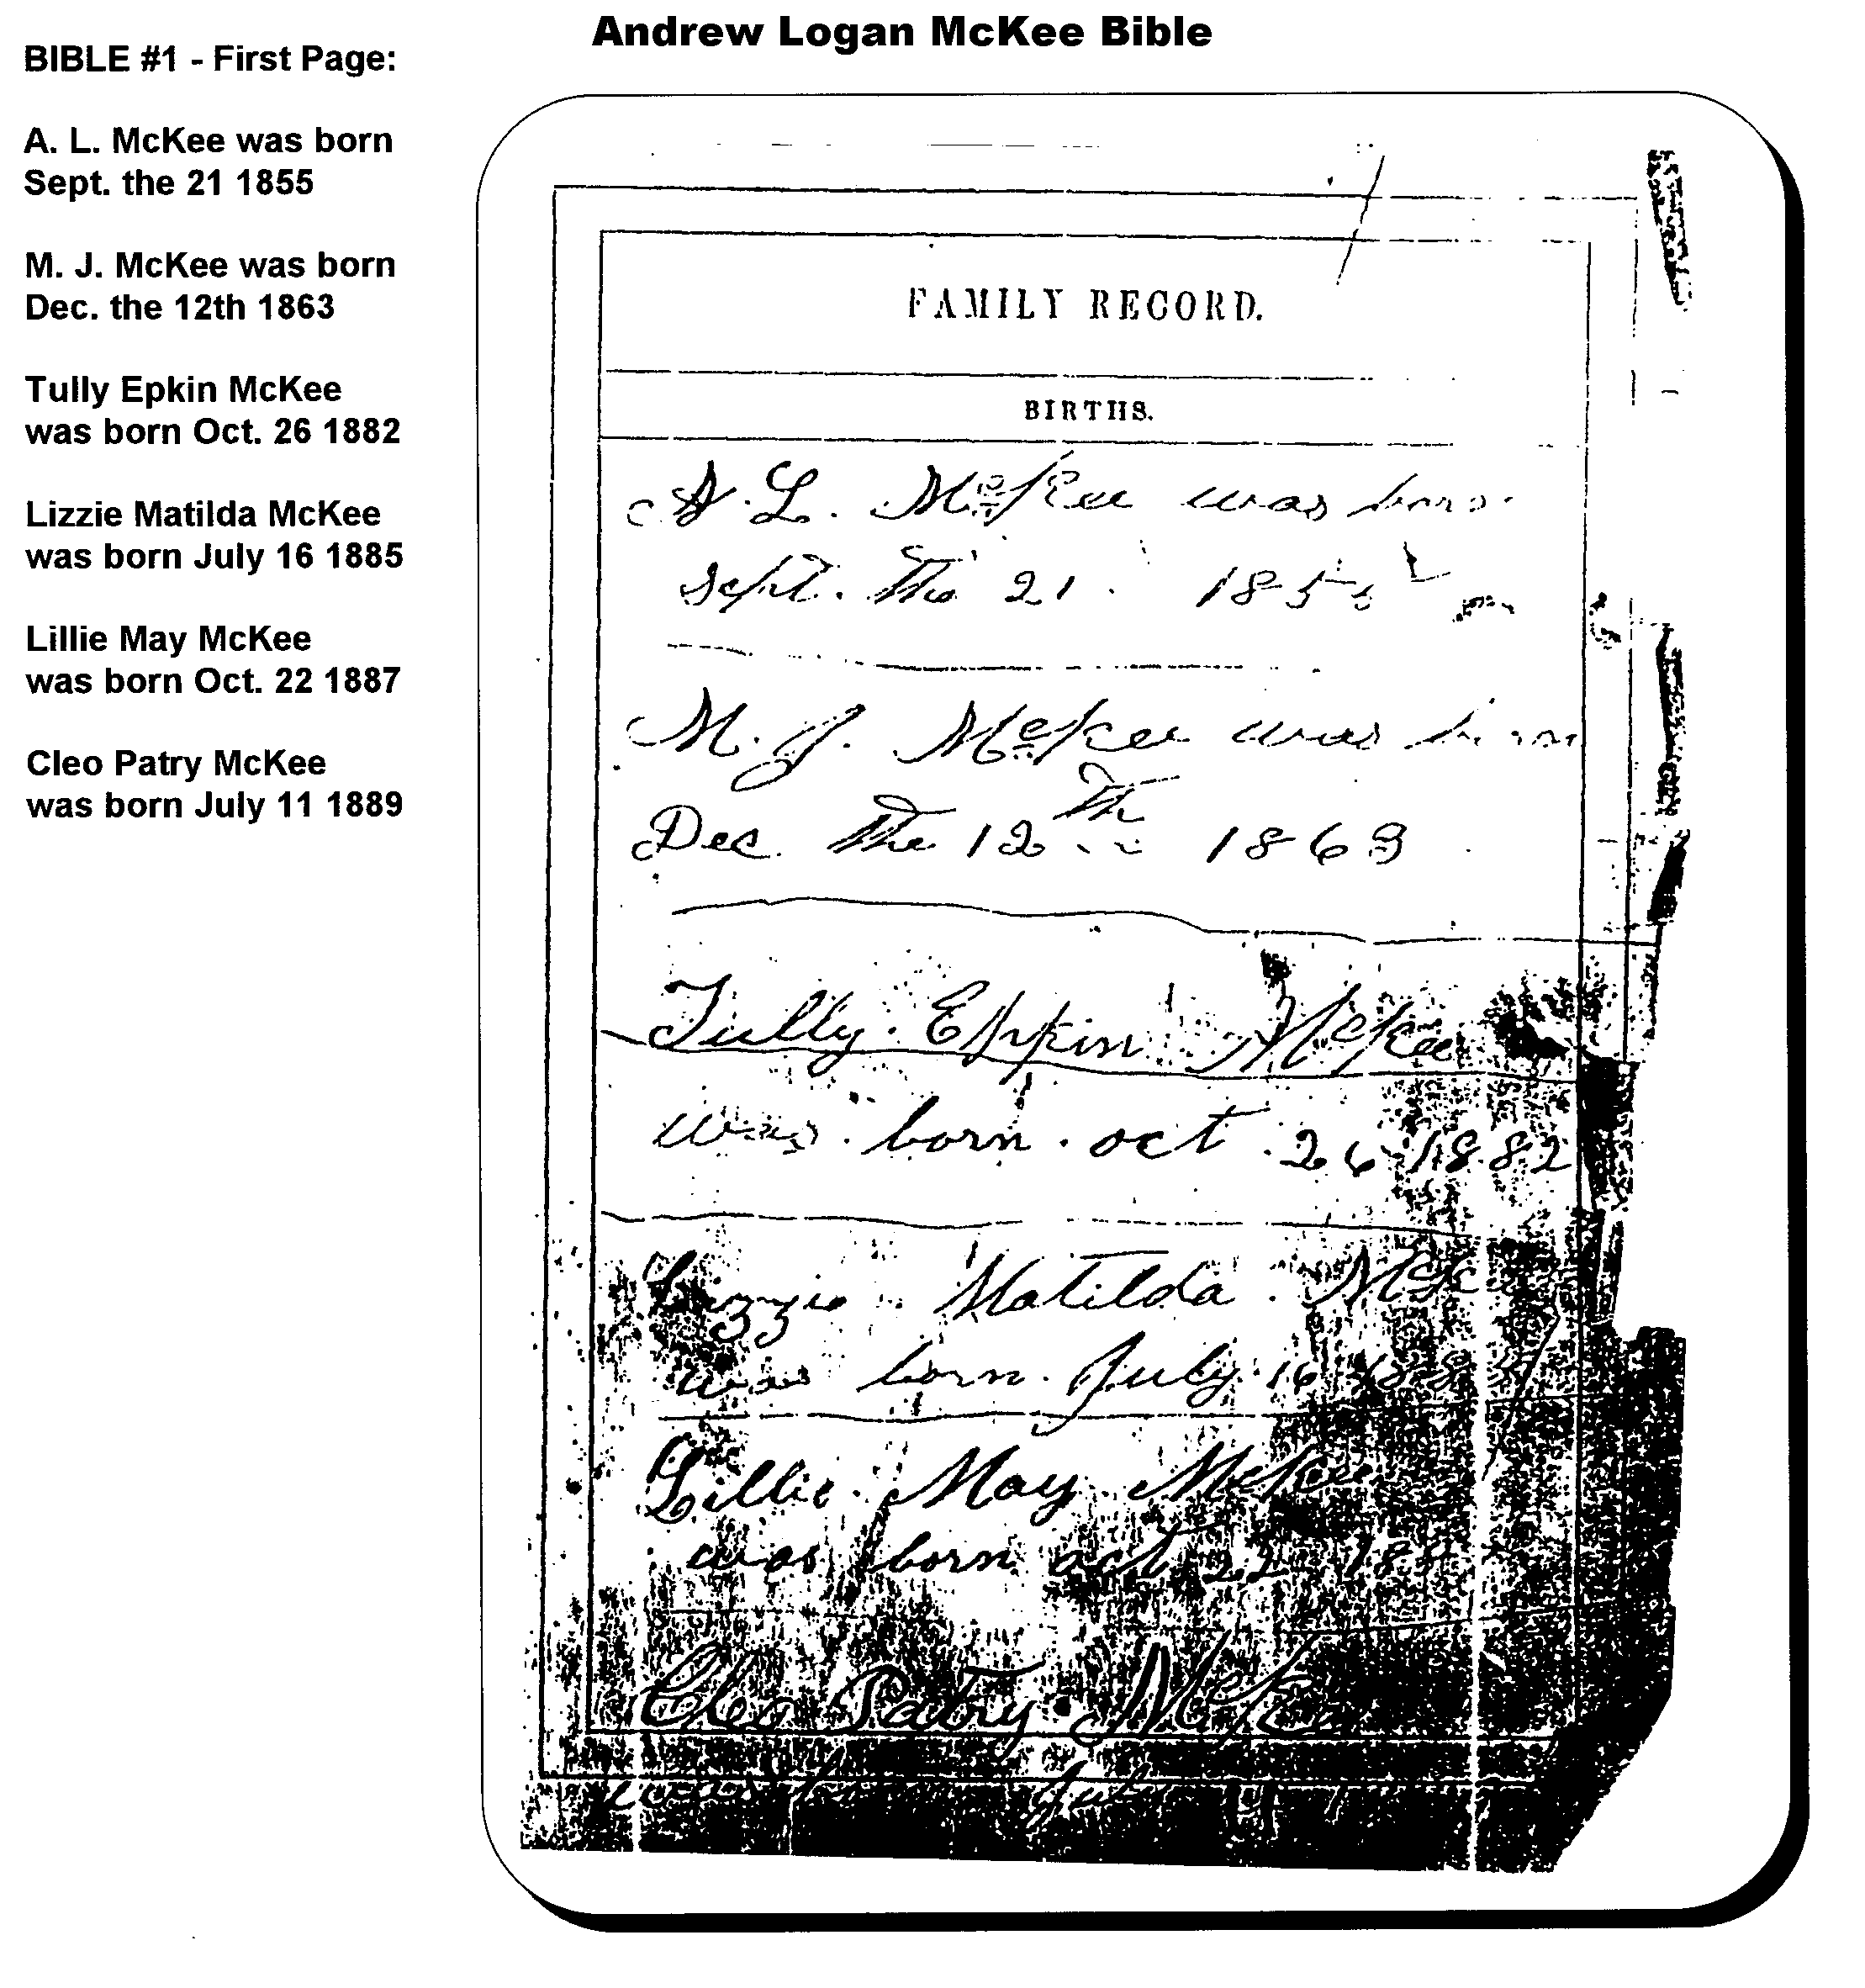 Andrew Logan McKee Bible
BIBLE #1 - First Page:
A. L. McKee was born
Sept. the 21 1855
M. J. McKee was born
Dec. the 12th 1863
Tully Epkin McKee
was born Oct. 26 1882
Lizzie Matilda McKee
was born July 16 1885
Lillie May McKee
was born Oct. 22 1887
Cleo Patry McKee
was born July 11 1889
FAMILY RECORD.
BIRTHS.
A. L. McKee was born
Sept. the 21 1855
M. J. McKee was born
Dec. the 12th 1863
Tully Epkin McKee
was born oct 26 1882
Lizzie Matilda McKee
was born July 16 188
Lillie May McKee
was born oct 22 188
Cleo Patry McKee
was born July 11